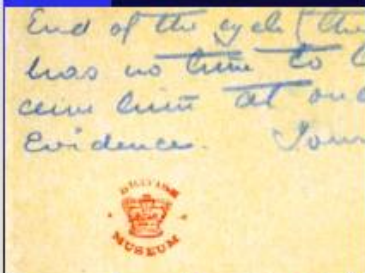 End of the cycle (the
has no time to
him at on
Evidence. Your
MUSEUM